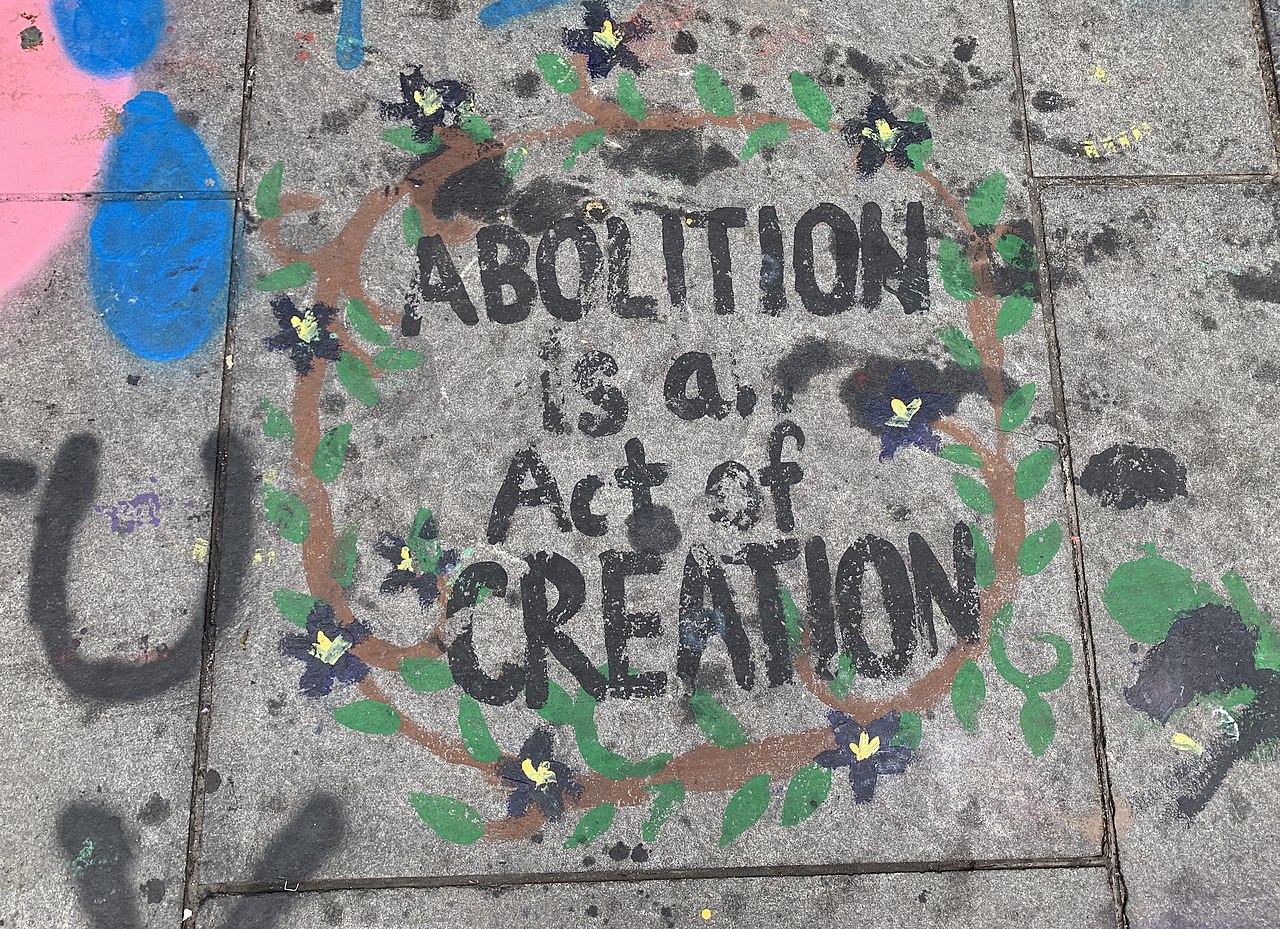 ABOLITION
is a
Act of
CREATION